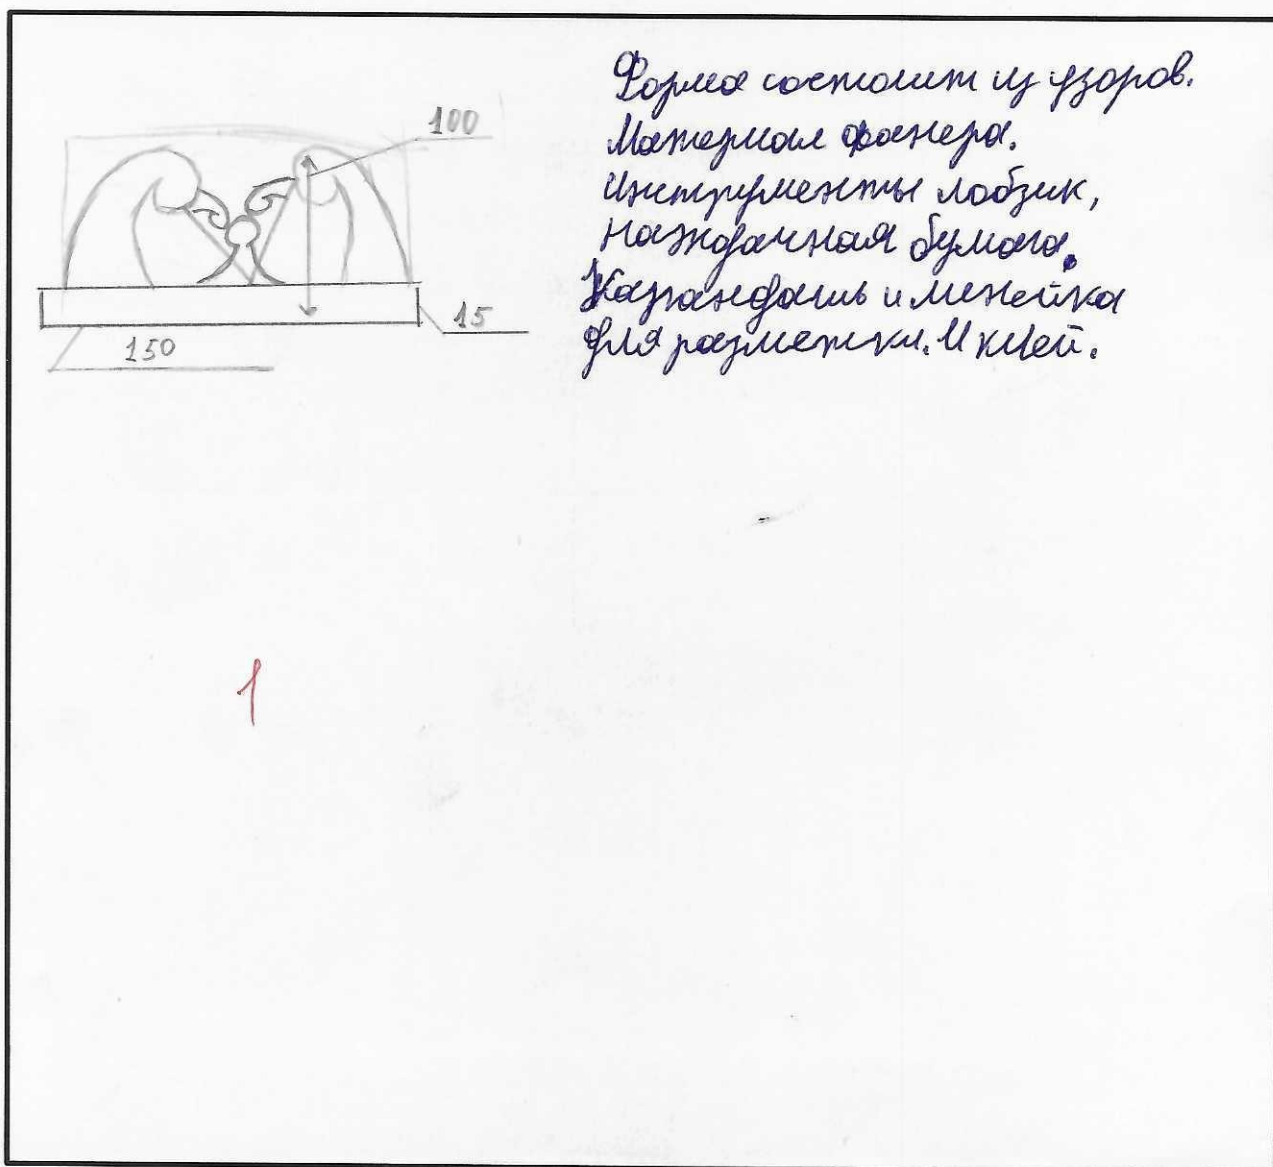 100
15
150
Форма состоит из узоров.
Материал фанера.
Инструменты лобзик,
наждачная бумага.
Карандашь и линейка
для разметки. И клей.
1